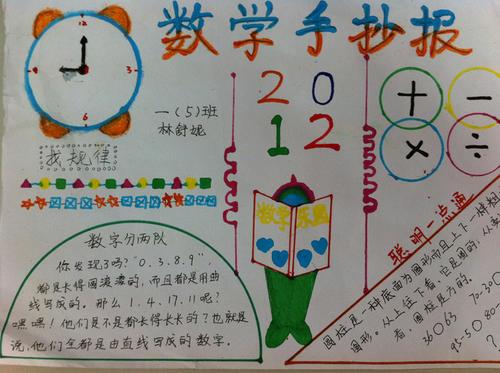 数学手抄报
12
9
3
6
一(5)班
林舒妮
20
12
+
-
×
÷
找规律
数字乐园
聪明一点通
数字分两队
你发现了吗?"0.3.8.9",
都是长得圆滚滚的,而且都是用曲
线写成的。那么1.4.17.11呢?
嘿嘿!他们是不是都长得长长的?也就是
说,他们全都是由直线写成的数字。
圆柱是一种底面为圆形而且上下一样粗
图形。从上往下看,它是圆的,从
看,圆柱是方的。
36○63
70-30○
95-50○80-
?